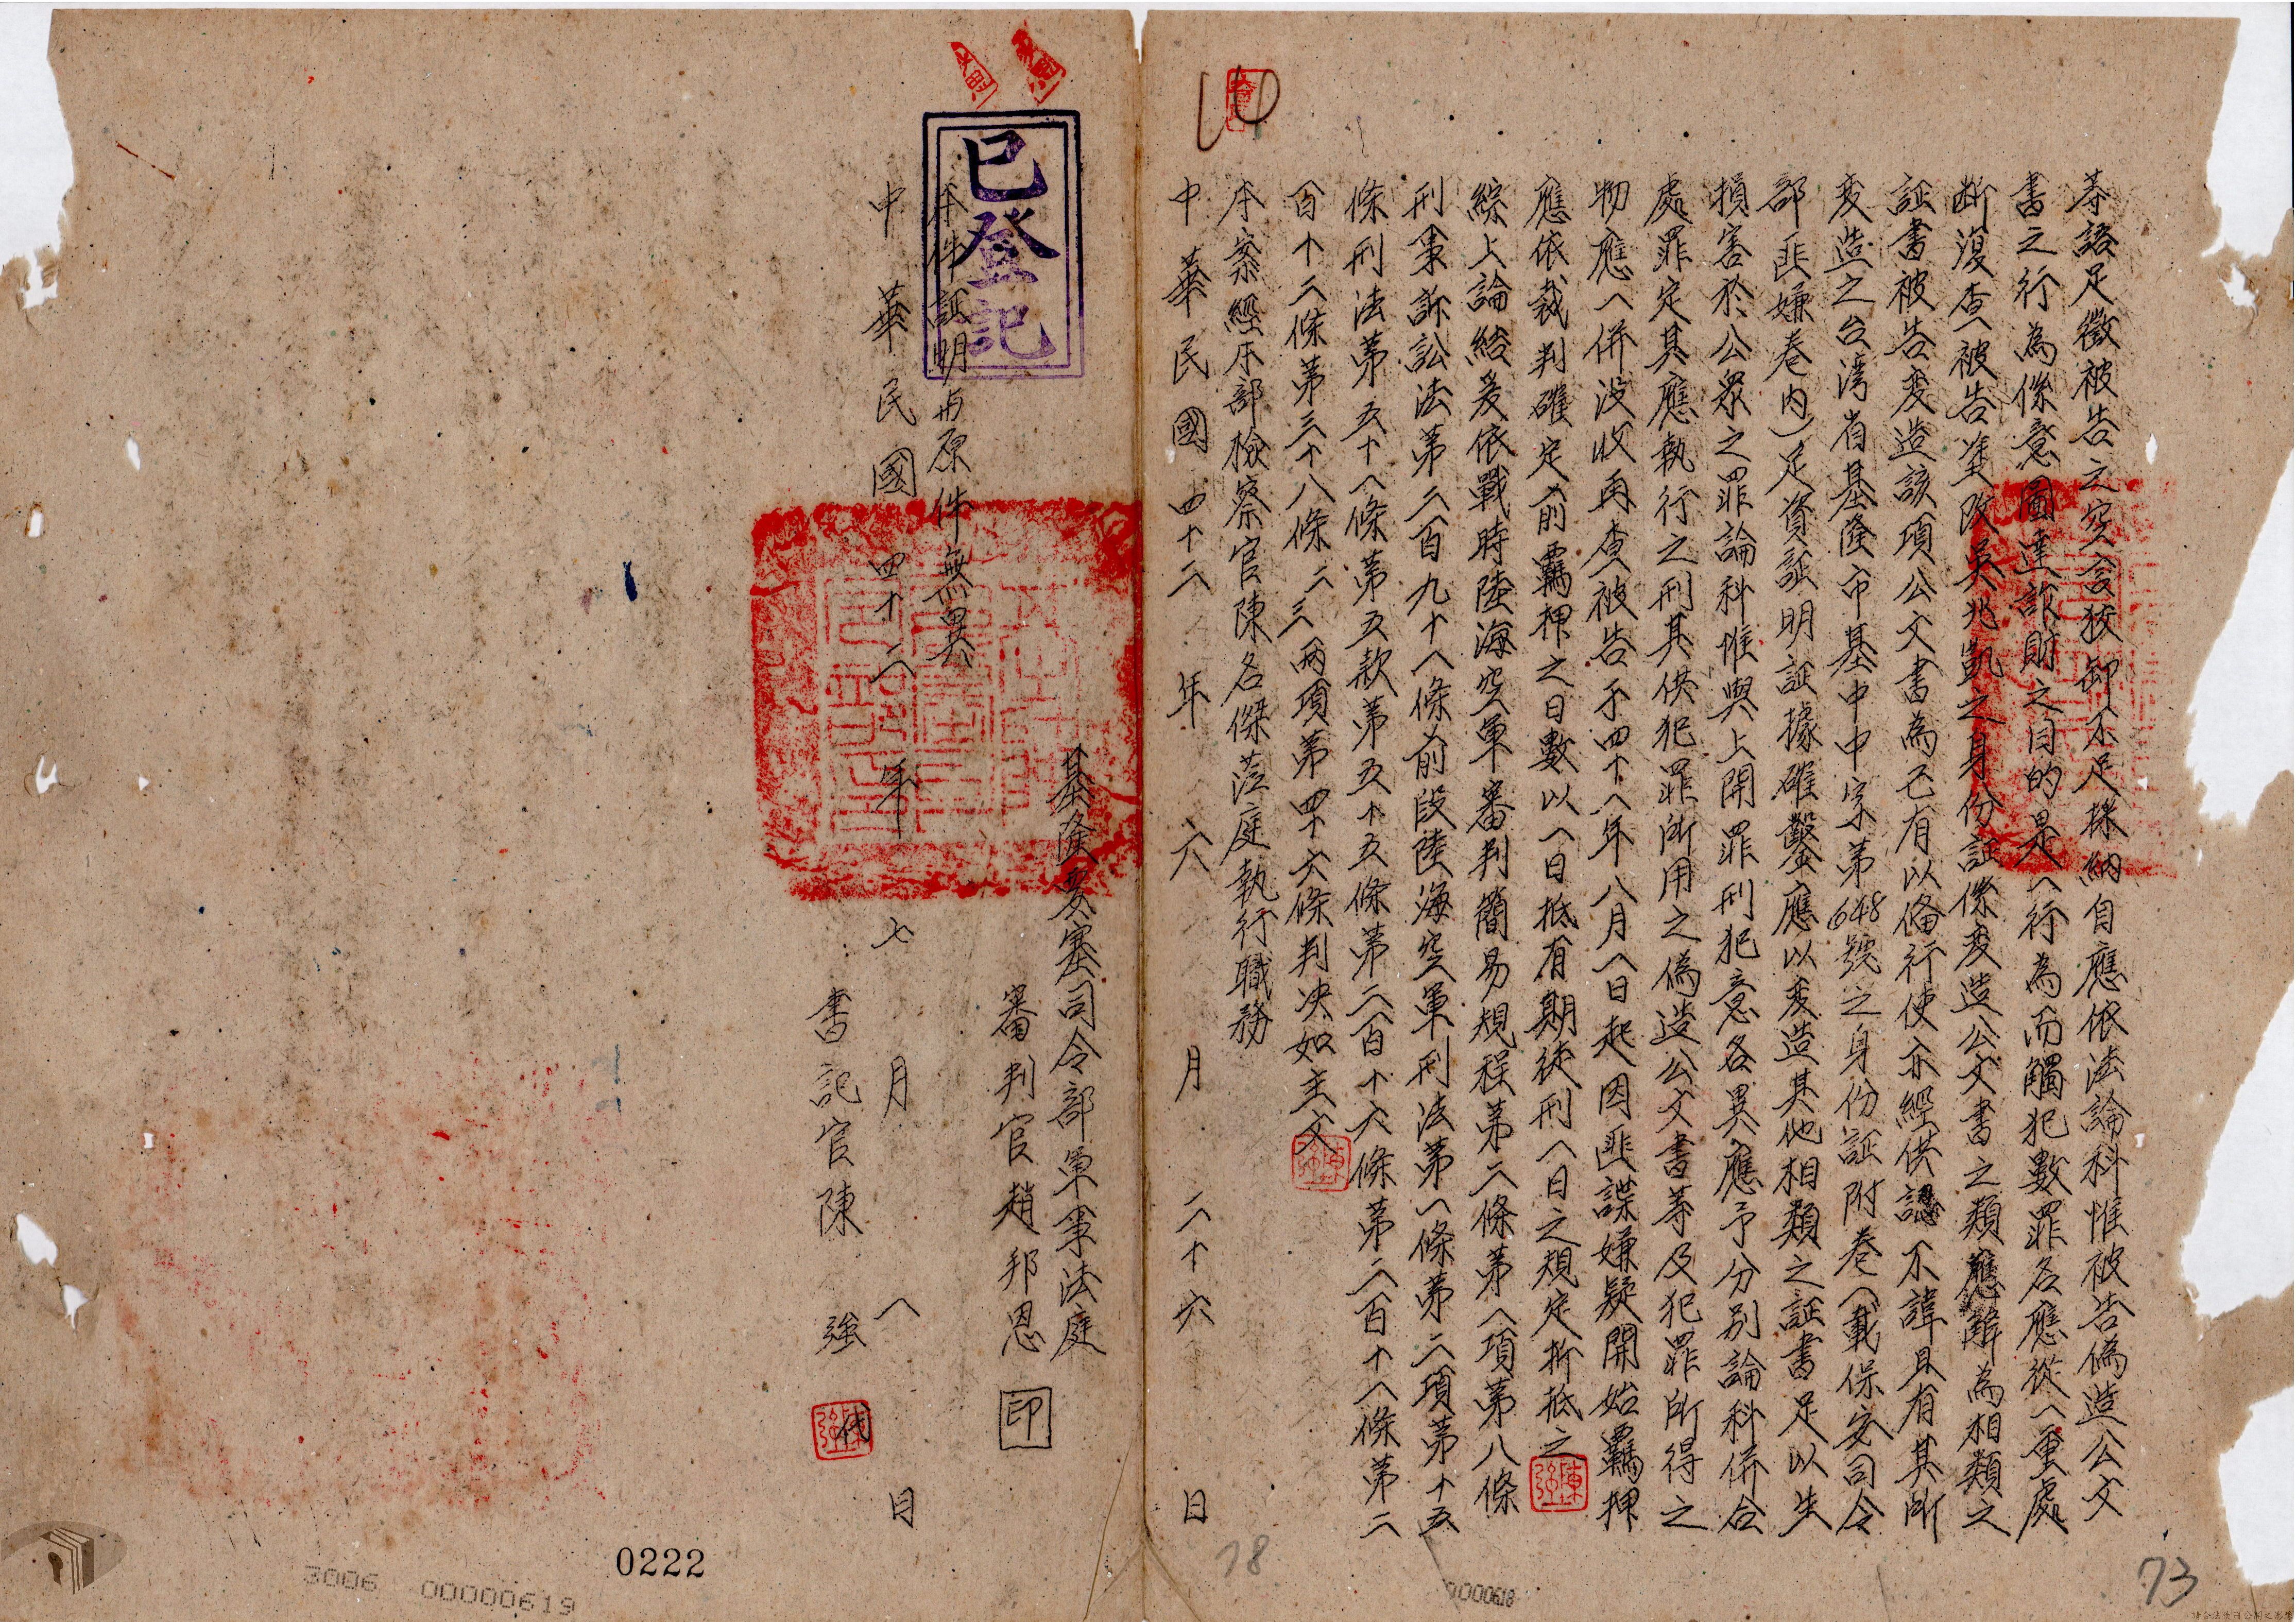 等語足徵被告之空言狡卸不足採納自應依法論科惟被告偽造公文
書之行為係意圖達詐財之目的是一行為而觸犯數罪名應從一重處
斷復查被告塗改吳兆凱之身份証係变造公文書之類應解為相類之
証書被告变造該項公文書為己有以俻行使亦經供認不諱且有其所
变造之台湾省基隆市基中中字第648號之身份証附卷(載保安司令
部匪嫌卷内)足資証明証據確鑿應以变造其他相類之証書足以失
損害於公眾之罪論科惟與上開罪刑犯意各異應予分別論科併合
處罪定其應執行之刑其供犯罪所用之偽造公文書等及犯罪所得之
物應一併没收再查被告于四十一年八月一日起因匪諜嫌疑開始羈押
應依裁判確定前羈押之日數以一日抵有期徒刑一日之規定折抵之
綜上論結爰依戰時陸海空軍審判簡易規程第二條第一項第八條
刑事訴訟法第二百九十一條前段陸海空軍刑法第一條第二項第十五
條刑法第五十一條第五款第五十五條第二百十六條第二百十一條第二
百十二條第三十八條二三兩項第四十六條判决如主文
本案經本部檢察官陳名傑蒞庭執行職務
中華民國四十二年六月二十六日
基隆要塞司令部軍事法庭
審判官趙邦恩 印
本件証明与原件無異
中華民國四十二年七月一日
書記官陳強 代
已登記
0222
3006 00000619
78
00000618
73